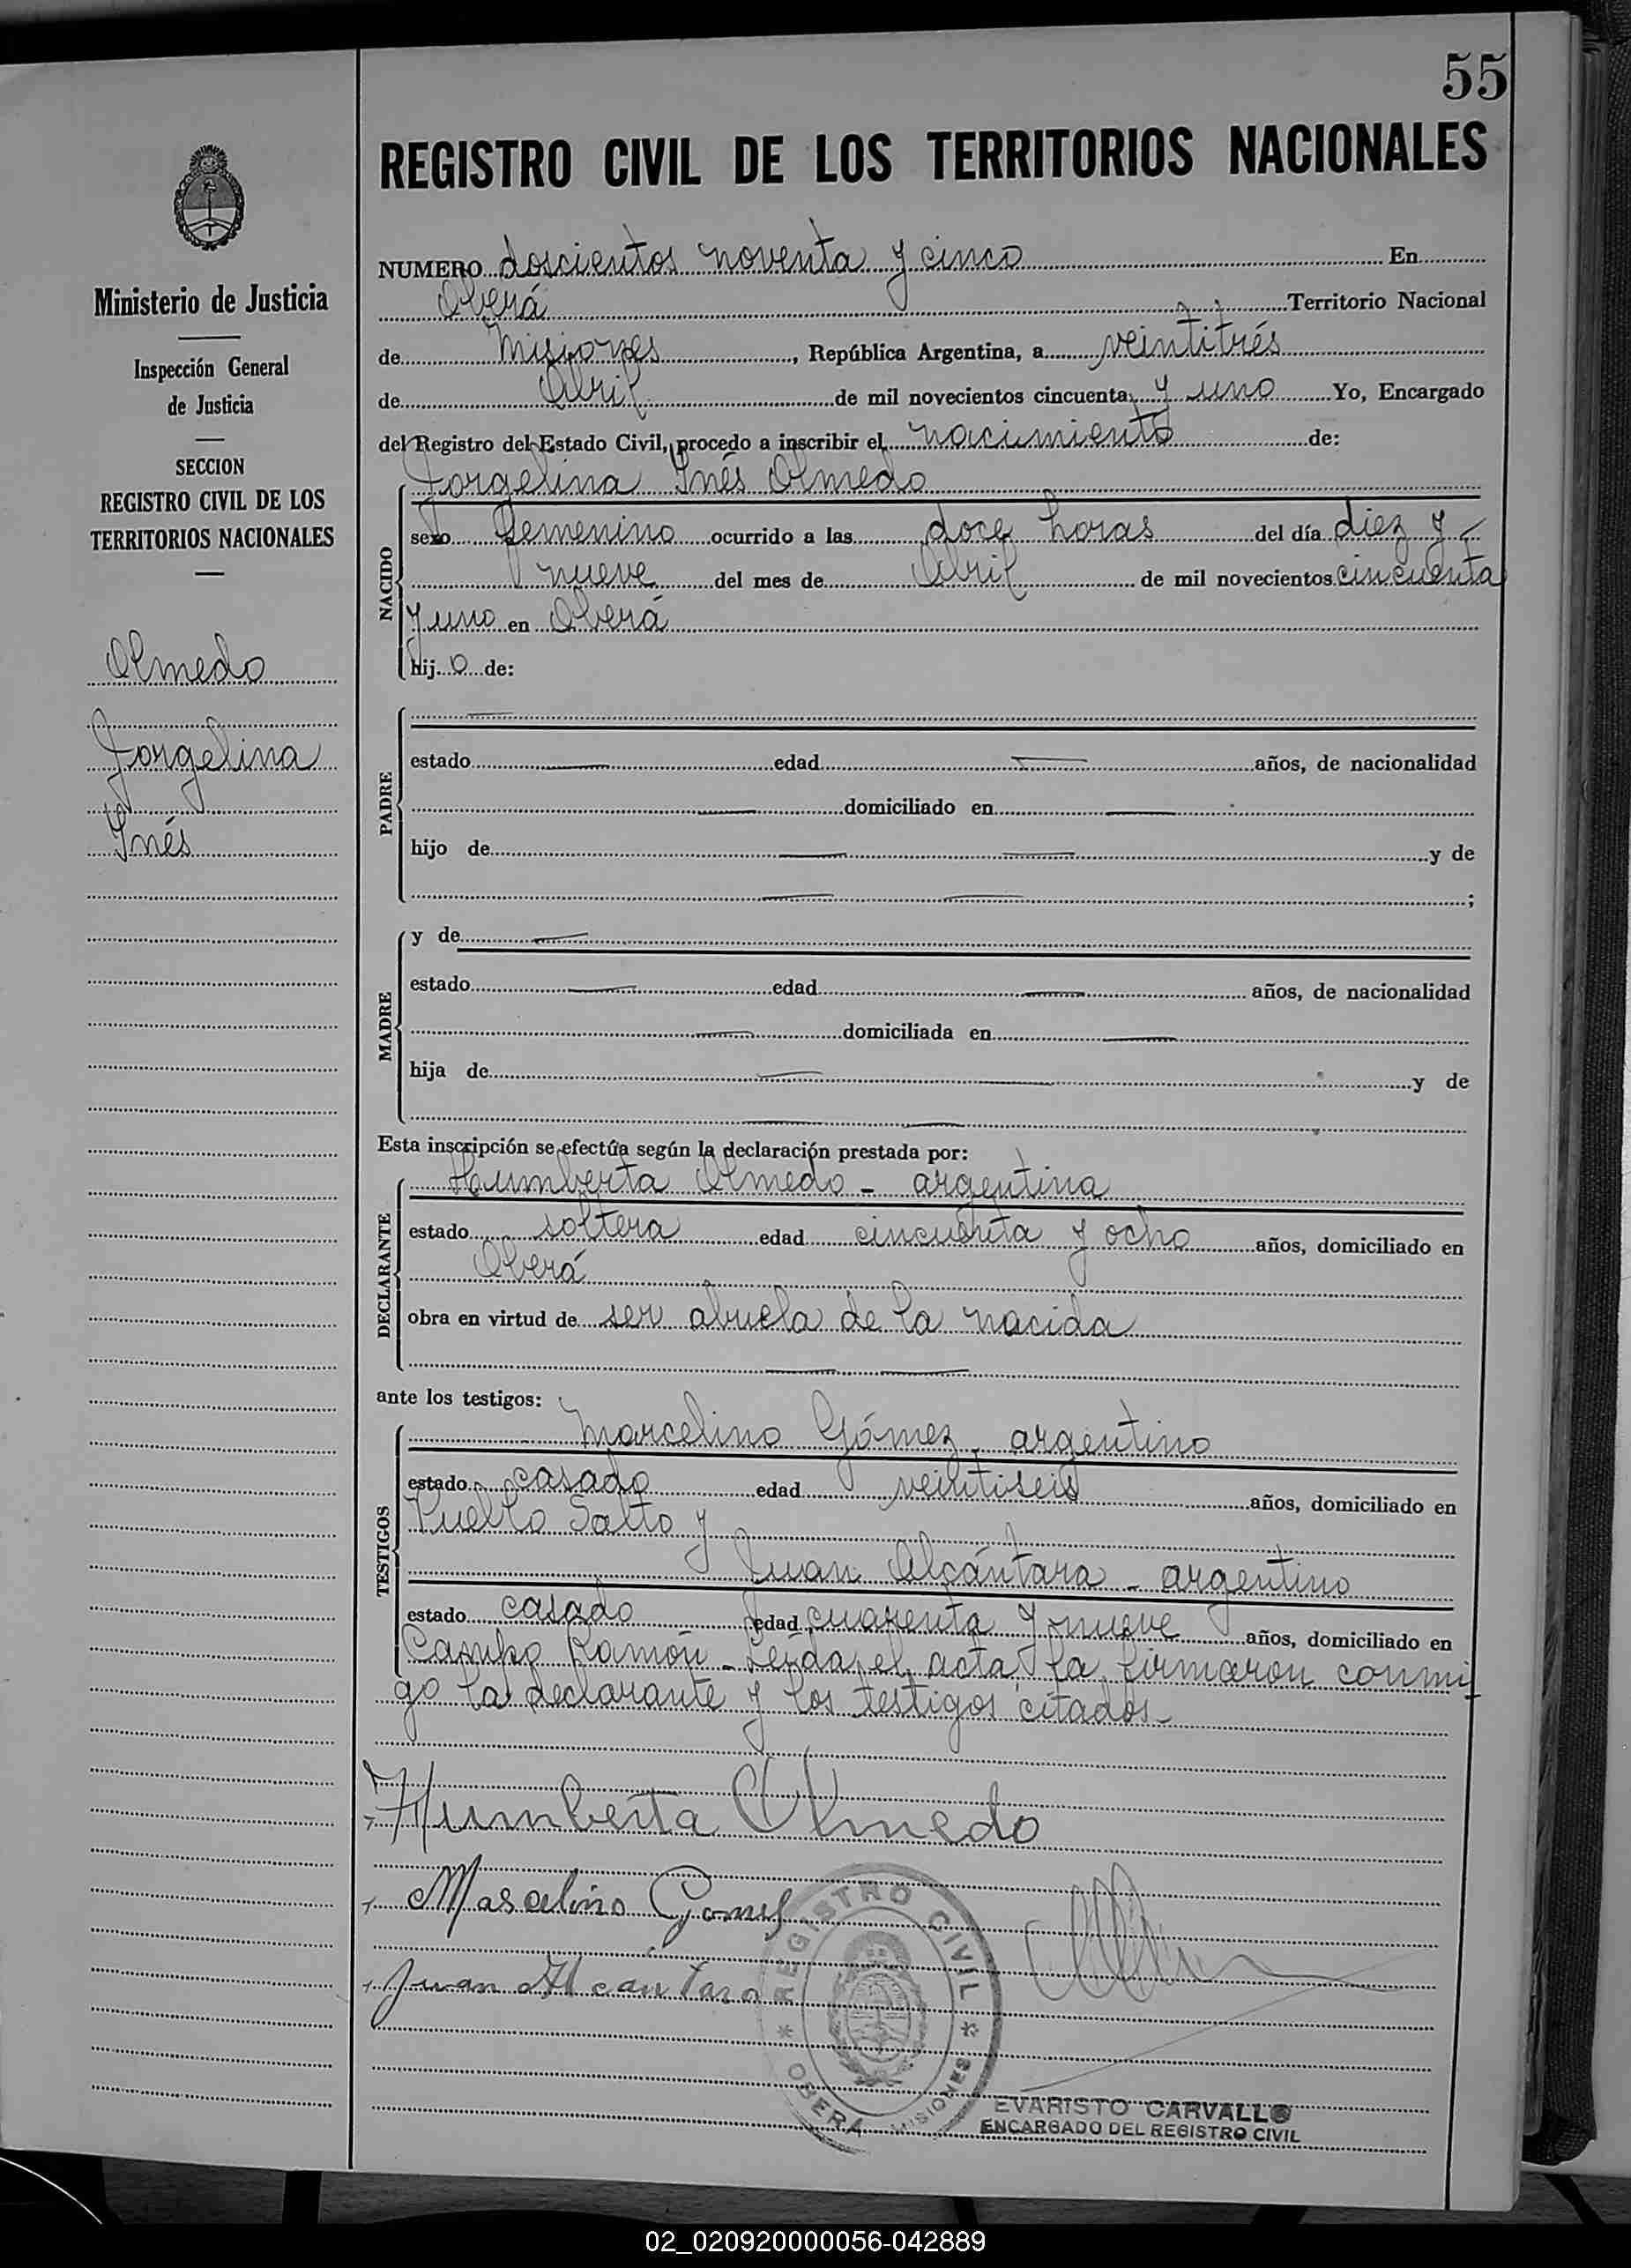 55
REGISTRO CIVIL DE LOS TERRITORIOS NACIONALES
Ministerio de Justicia
Inspección General
de Justicia
SECCION
REGISTRO CIVIL DE LOS
TERRITORIOS NACIONALES
Olmedo
Jorgelina
Inés
NUMERO doscientos noventa y cinco En
Oberá Territorio Nacional
de Misiones, República Argentina, a veintitrés
de Abril de mil novecientos cincuenta y uno Yo, Encargado
del Registro del Estado Civil, procedo a inscribir el nacimiento de:
Jorgelina Inés Olmedo
NACIDO
sexo femenino ocurrido a las doce horas del día diez y
nueve del mes de Abril de mil novecientos cincuenta
y uno en Oberá
hij o de:
PADRE
estado edad años, de nacionalidad
domiciliado en
hijo de y de
;
MADRE
y de
estado edad años, de nacionalidad
domiciliada en
hija de y de
Esta inscripción se efectúa según la declaración prestada por:
Humberta Olmedo - argentina
DECLARANTE
estado soltera edad cincuenta y ocho años, domiciliado en
Oberá
obra en virtud de ser abuela de la nacida
ante los testigos:
Marcelino Gómez - argentino
TESTIGOS
estado casado edad veintiseis años, domiciliado en
Puello Salto y
Juan Alcántara - argentino
estado casado edad cuarenta y nueve años, domiciliado en
Campo Ramón - Leída el acta la firmaron conmi
go la declarante y los testigos citados -
Humberta Olmedo
Marcelino Gomes
Juan Alcántara
REGISTRO CIVIL
OBERÁ MISIONES
EVARISTO CARVALLO
ENCARGADO DEL REGISTRO CIVIL
02_020920000056-042889